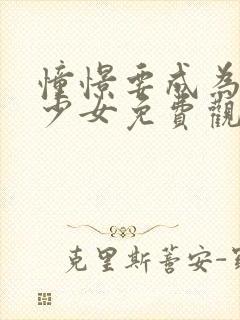 憧憬要成為
少女免費觀
克里斯蒼安-